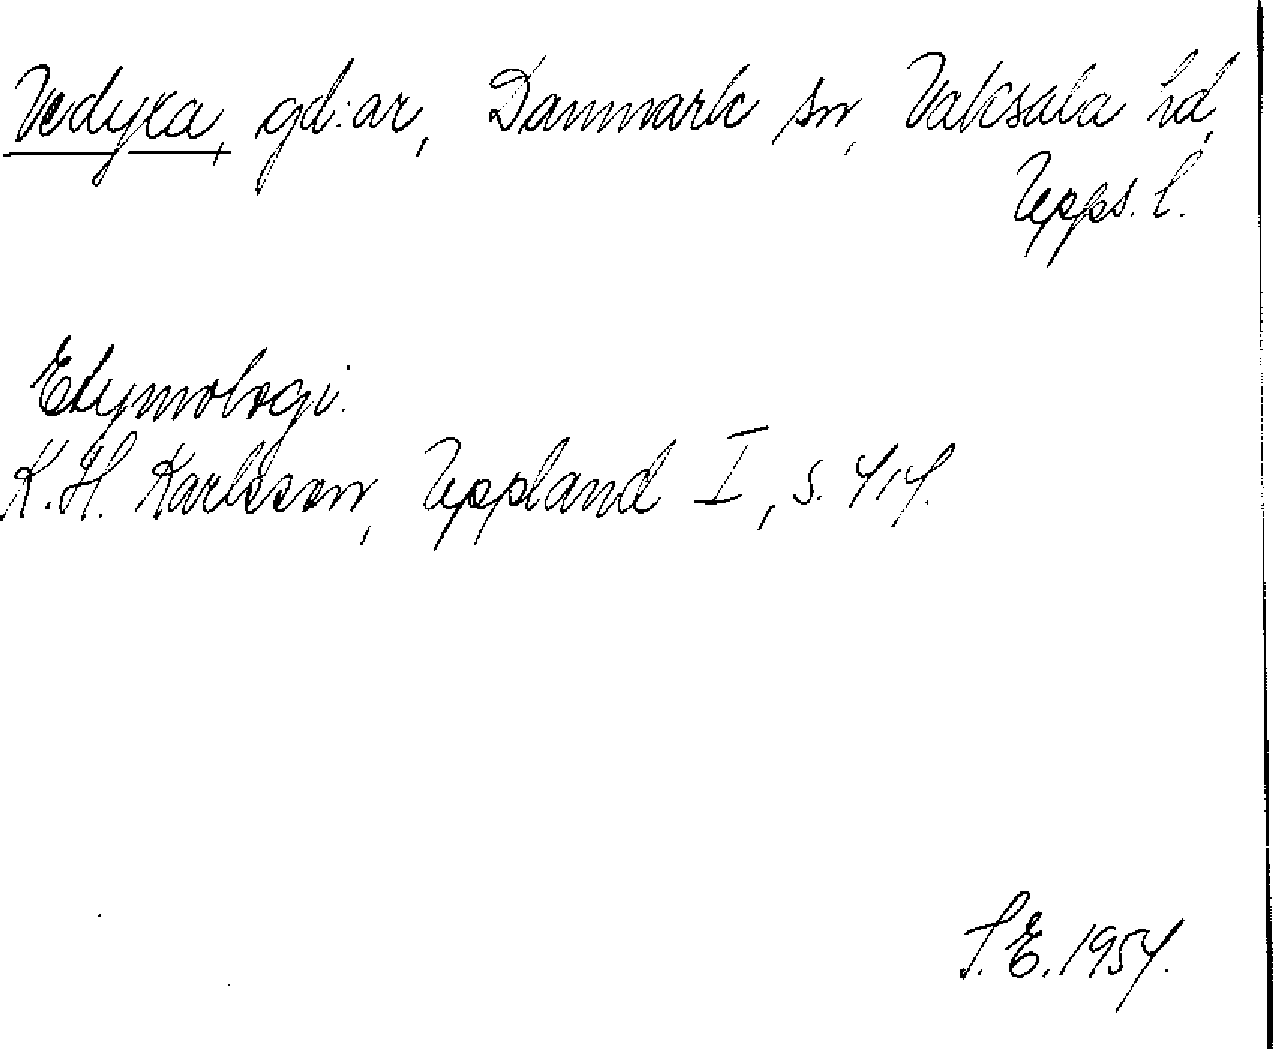 Vedyxa, gd:ar, Danmark sn, Vaksala hd,
Upps. l.
Etymologi.
K. H. Karlsson, Uppland I, s. 414.
S. E. 1954.